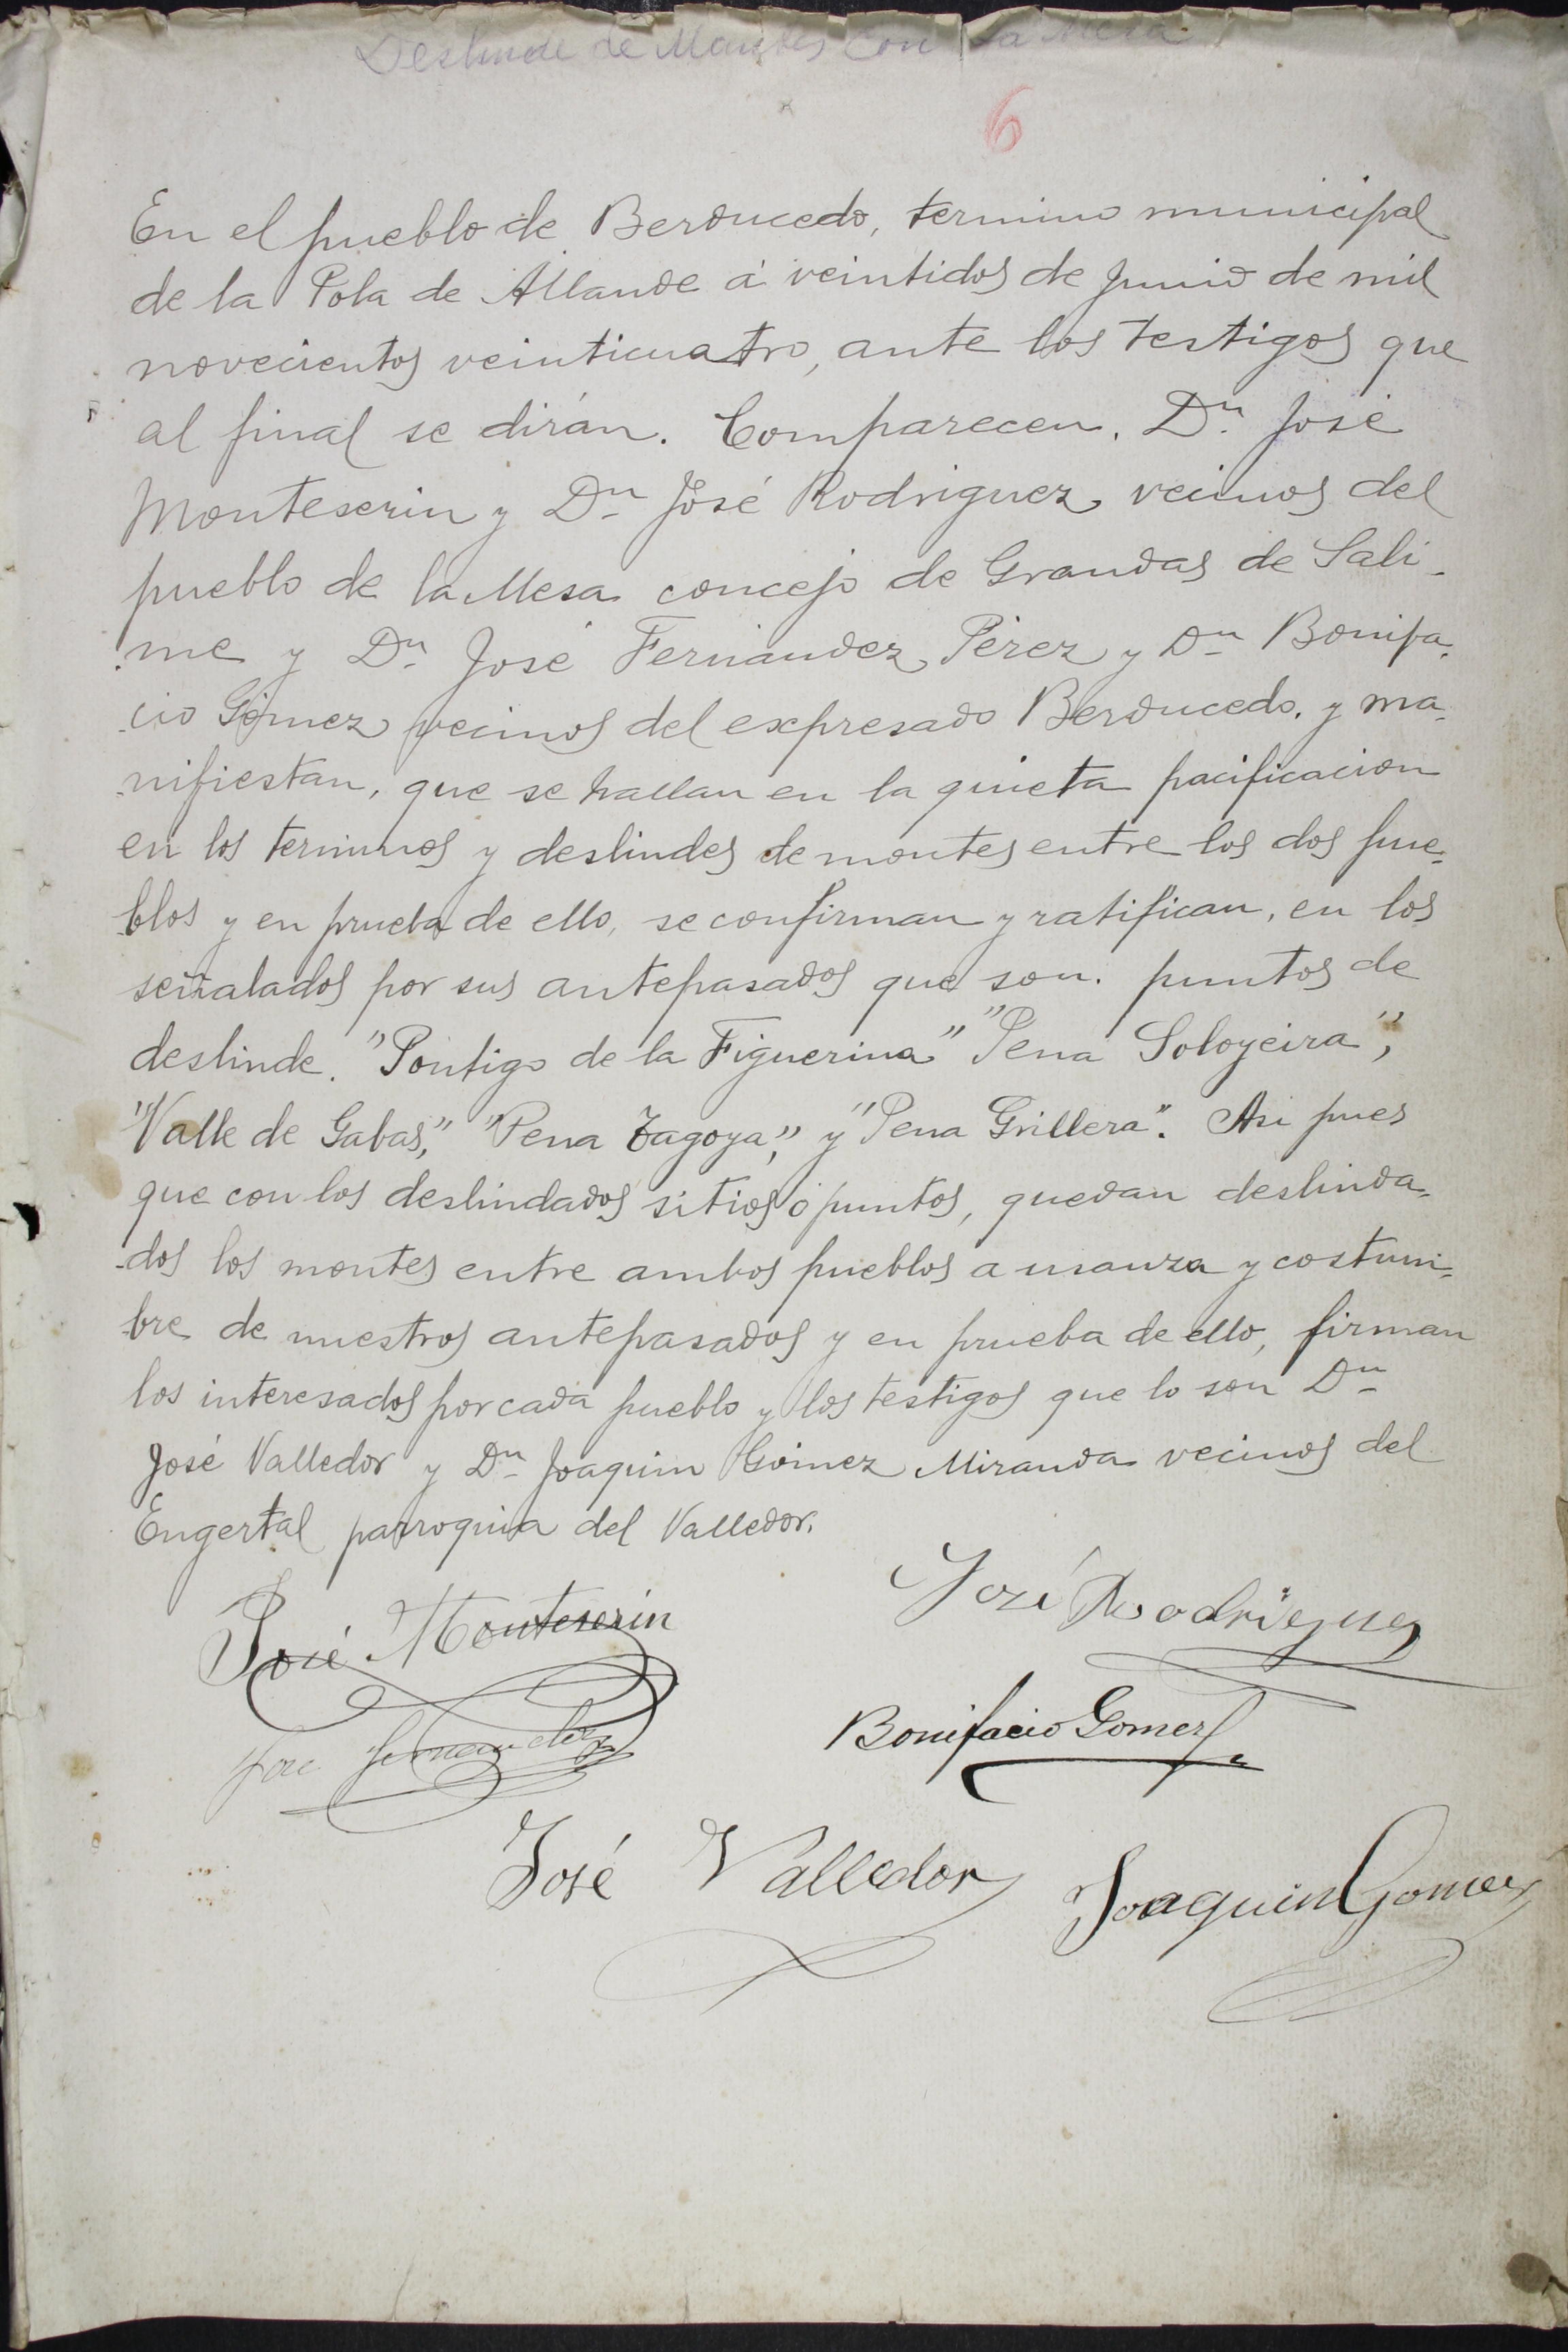 Deslinde de Montes con La Mesa
6
En el pueblo de Berducedo, termino municipal
de la Pola de Allande á veintidos de Junio de mil
novecientos veinticuatro, ante los testigos que
al final se dirán. Comparecen. Dn José
Monteserin y Dn José Rodriguez vecinos del
pueblo de la Mesa concejo de Grandas de Sali-
me y Dn José Fernández Pérez y Dn Bonifa-
cio Gómez vecinos del expresado Berducedo. y ma-
nifiestan, que se hallan en la quieta pacificacion
en los terminos y deslindes de montes entre los dos pue-
blos y en prueba de ello, se confirman y ratifican, en los
señalados por sus antepasados que son. puntos de
deslinde. "Pontigo de la Figuerina" "Pena Soloyeira",
"Valle de Gabas," "Pena Tagoya," y "Pena Grillera". Asi pues
que con los deslindados sitios ó puntos, quedan deslinda-
dos los montes entre ambos pueblos a usanza y costum-
bre de nuestros antepasados y en prueba de ello, firman
los interesados por cada pueblo y los testigos que lo son Dn
José Valledor y Dn Joaquin Gómez Miranda vecinos del
Engertal parroquia del Valledor.
José Monteserín
José Rodriguez
José Fernandez
Bonifacio Gomez
José Valledor
Joaquin Gomez